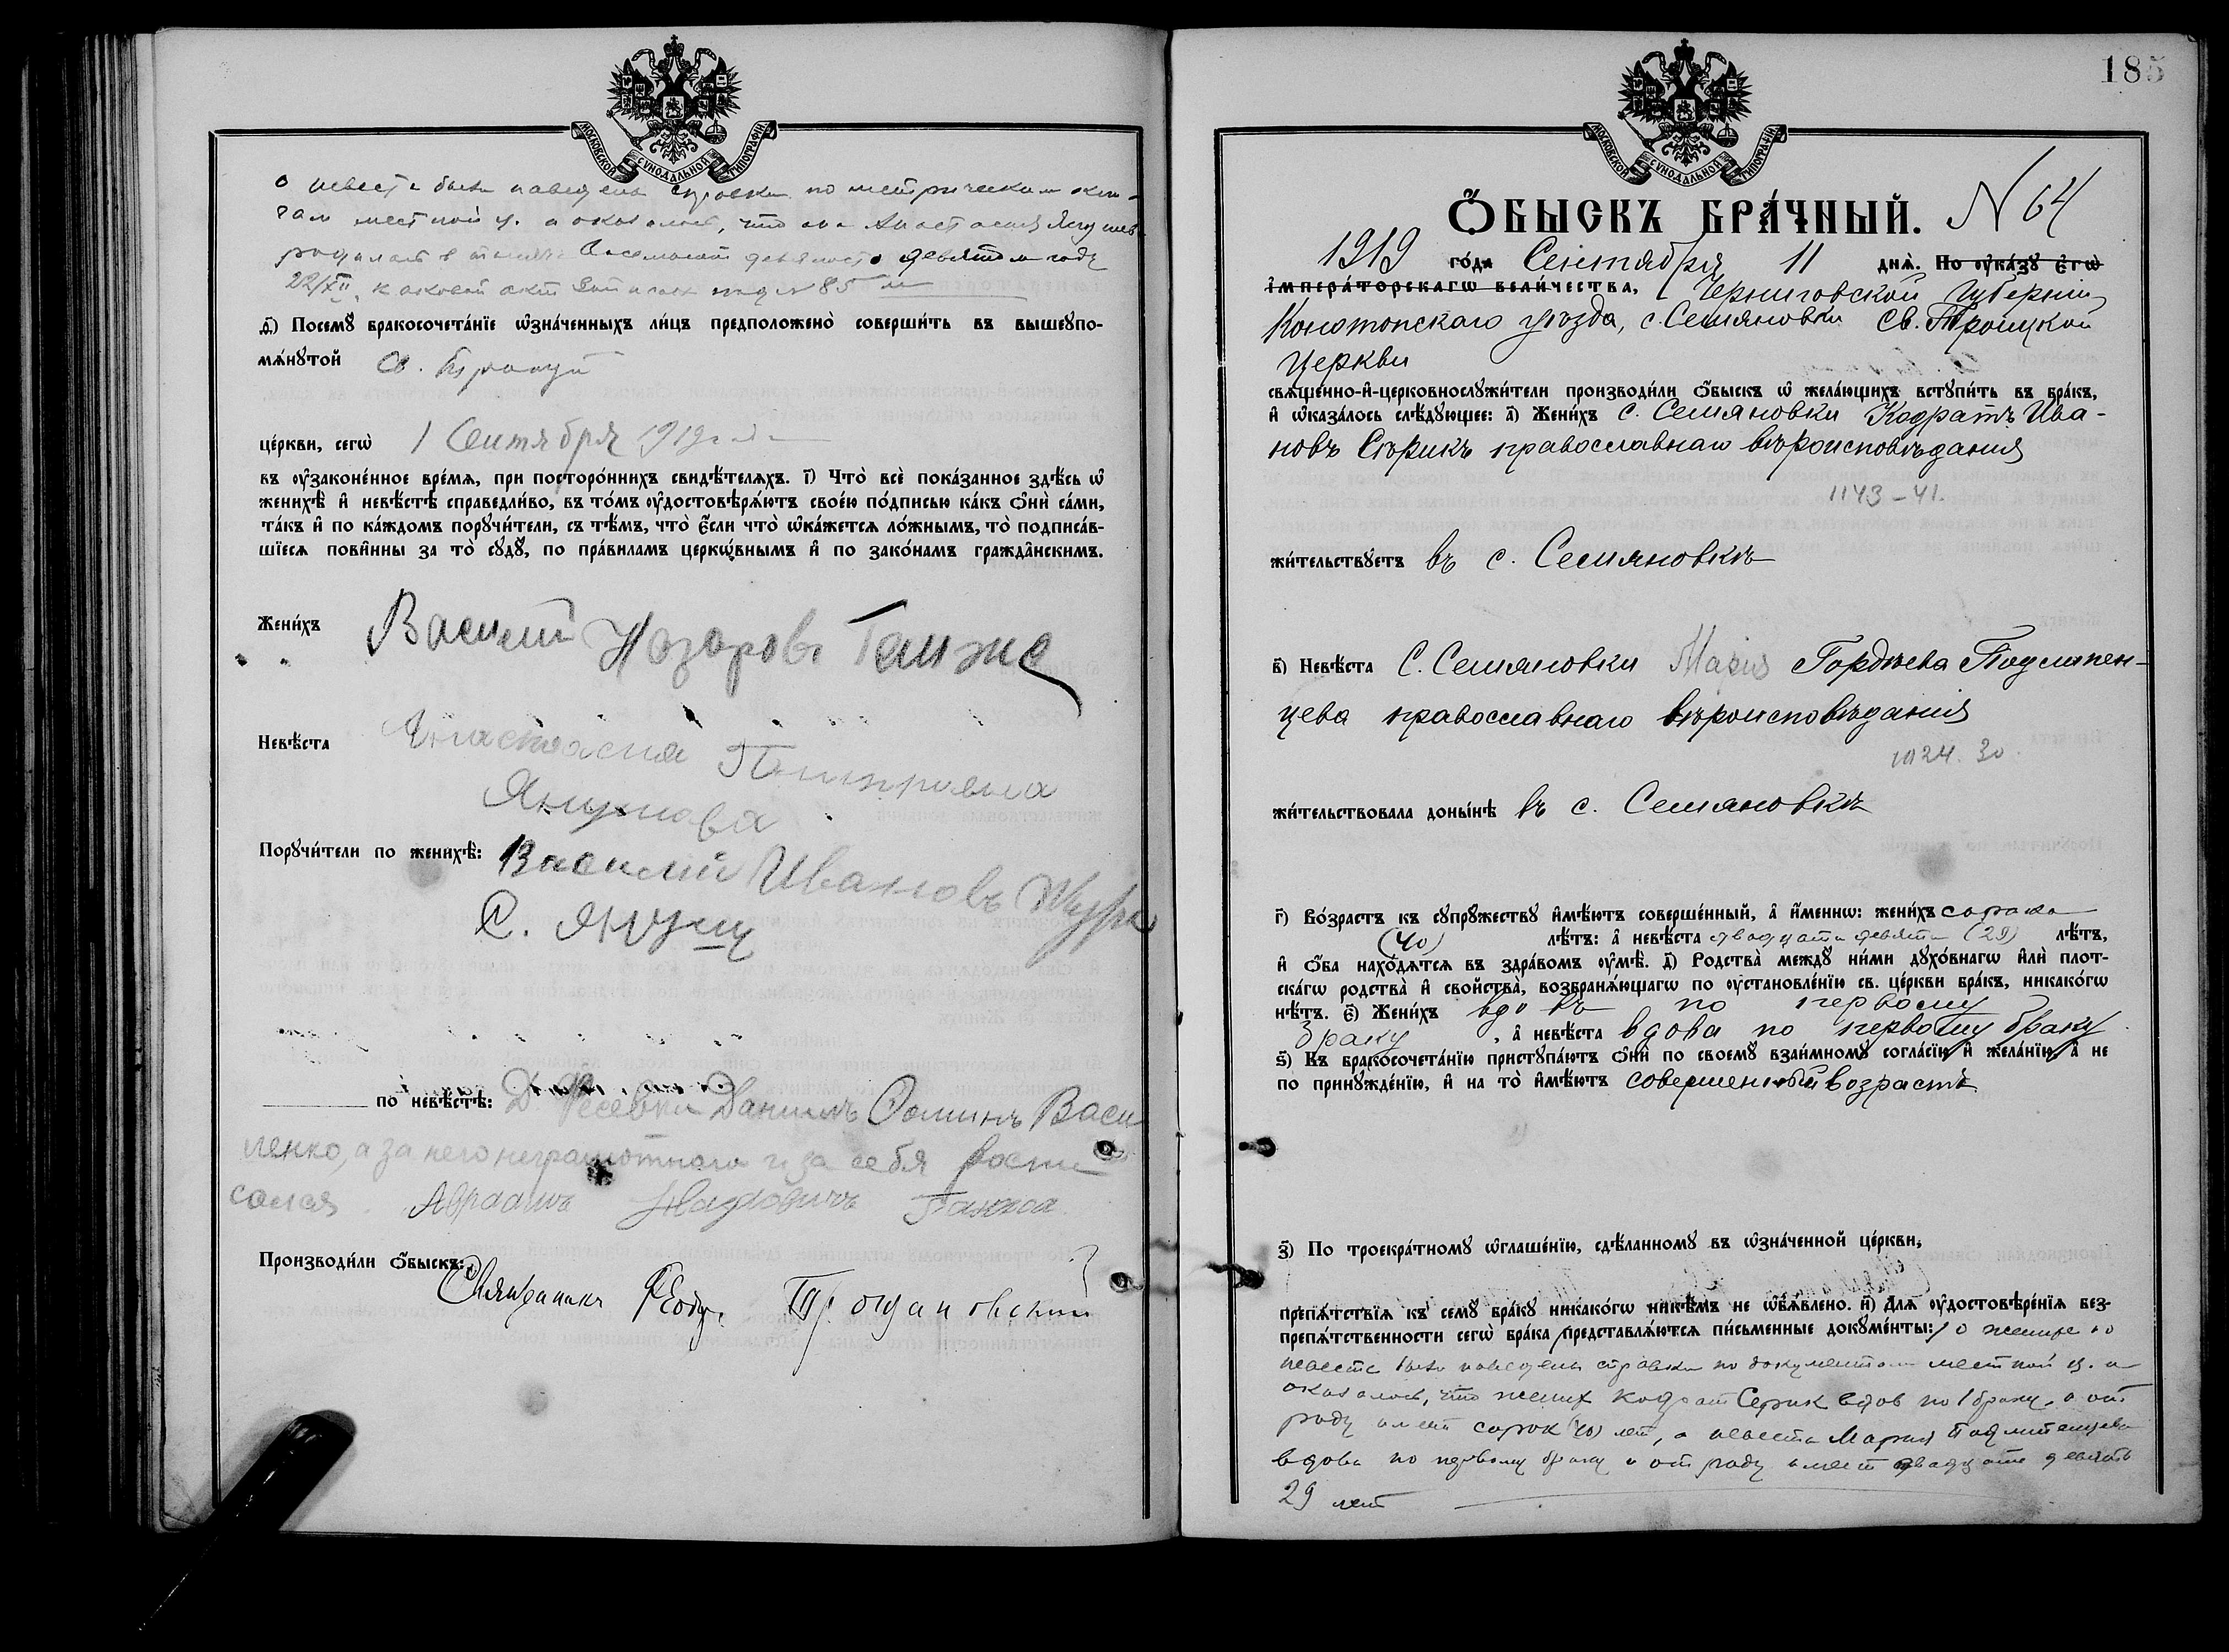 МОСКОВСКОЙ СУНОДАЛЬНОЙ ТИПОГРАФІИ
о невесте были наведены справки по метрическим кни-
гам местной ц. и оказалось, что она Анастасия
родилась в тысяча восемьсот девяносто девятом году
22/XII, каковой акт записан под № 85 м
д҃і) Посемꙋ̀ бракосочета́нїе ѡ҆зна́ченныхъ ли́цъ предположено̀ соверши́ть въ вышеꙋпо-
мѧ́нꙋтой Св. Троицк
це́ркви, сегѡ̀ 1 Сентября 1919 года
въ ᲂу҆зако́ненное вре́мѧ, при посторо́ннихъ свидѣ́телѧхъ. і҃) Что̀ всѐ пока́занное здѣ́сь ѡ҆
женихѣ̀ и҆ невѣ́стѣ справедли́во, въ то́мъ ᲂу҆достовѣрѧ́ютъ свое́ю по́дписью ка́къ ѻ҆нѝ са́ми,
та́къ и҆ по ка́ждомъ порꙋчи́тели, съ тѣ́мъ, что̀ є҆́сли что̀ ѡ҆ка́жетсѧ ло́жнымъ, то̀ подписа́в-
шїесѧ пови́нны за то̀ сꙋдꙋ̀, по пра́виламъ церкѡ́внымъ и҆ по зако́намъ гражда́нскимъ.
Жени́хъ Василий Назаровъ
Невѣ́ста Анастасия Петровна
Янушова
Порꙋчи́тели по женихѣ̀: Василий Ивановъ
С. Януш
по невѣ́стѣ: Д. Фесевки Данилъ Фоминъ Васи
ленко, а за него неграмотного и за себя роспи
сался Авраамъ
Производи́ли ѻ҆́быскъ: Священникъ Ѳеод.
185
МОСКОВСКОЙ СУНОДАЛЬНОЙ ТИПОГРАФІИ
Ѻ҆́БЫСКЪ БРА́ЧНЫЙ. N 64
1919 го́да Сентября 11 днѧ̀. По ᲂу҆ка́зꙋ є҆гѡ̀
і҆мпера́торскагѡ вели́чества, Черниговской Губерніи
Конотопскаго уѣзда, с. Семяновки Св. Троицкой
Церкви
свѧще́нно-и҆-церковнослꙋжи́тели производи́ли ѻ҆́быскъ ѡ҆ жела́ющихъ встꙋпи́ть въ бра́къ,
и҆ ѡ҆каза́лось слѣ́дꙋющее: а҃) Жени́хъ с. Семяновки Кодратъ Ива-
новъ Сѣрикъ православнаго вѣроисповѣданія
1143-41.
жи́тельствꙋетъ въ с. Семяновкѣ
в҃) Невѣ́ста С. Семяновки Марія Гордѣева Подлипен-
цева православнаго вѣроисповѣданія
1024. 30.
жи́тельствовала доны́нѣ въ с. Семяновкѣ
г҃) Во́зрастъ къ сꙋпрꙋ́жествꙋ и҆мѣ́ютъ соверше́нный, а҆ и҆́меннѡ: жени́хъ сорока
(40) лѣ́тъ: а҆ невѣ́ста двадцати девяти (29) лѣ́тъ,
и҆ ѻ҆́ба нахо́дѧтсѧ въ здра́вомъ ᲂу҆мѣ̀. д҃) Родства̀ междꙋ̀ ни́ми дꙋхо́внагѡ и҆лѝ плот-
ска́гѡ родства̀ и҆ свойства̀, возбранѧ́ющагѡ по ᲂу҆становле́нїю св. це́ркви бра́къ, никако́гѡ
нѣ́тъ. є҃) Жени́хъ вдовъ по первому
браку, а҆ невѣ́ста вдова по первому браку
ѕ҃) Къ бракосочета́нїю пристꙋпа́ютъ ѻ҆нѝ по своемꙋ̀ взаи́мномꙋ согла́сїю и҆ жела́нїю, а҆ не
по принꙋжде́нїю, и҆ на то̀ и҆мѣ́ютъ совершенный возрастъ
з҃) По троекра́тномꙋ ѡ҆глаше́нїю, сдѣ́ланномꙋ въ ѡ҆зна́ченной це́ркви,
препѧ́тствїѧ къ семꙋ̀ бра́кꙋ никако́гѡ никѣ́мъ не ѡ҆б̾ѧ́влено. и҃) Длѧ̀ ᲂу҆достовѣре́нїѧ без-
препѧ́тственности сегѡ̀ бра́ка представлѧ́ютсѧ пи́сьменные докꙋме́нты: о женихе и о
невесте были наведены справки по документам местной ц. и
оказалось, что жених Кодрат Серик вдов по 1 браку, и от
роду имеет сорок (40) лет, а невеста Мария Подлипенцева
вдова по первому браку и от роду имеет двадцать девять
29 лет